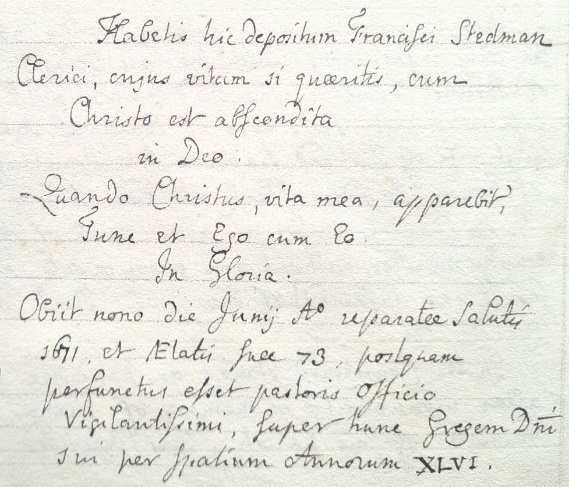 Habetis hic depositum Francisci Stedman
Clerici, cujus vitam si quæritis, cum
Christo est abscondita
in Deo.
Quando Christus, vita mea, apparebit,
Tunc et Ego cum Eo.
In Gloria.
Obiit nono die Junij Aº reparatæ Salutis
1671, et Ætatis suæ 73, postquam
perfunctus esset pastoris Officio
Vigilantissimi, super hunc Gregem Dñi
sui per spatium Annorum XLVI.